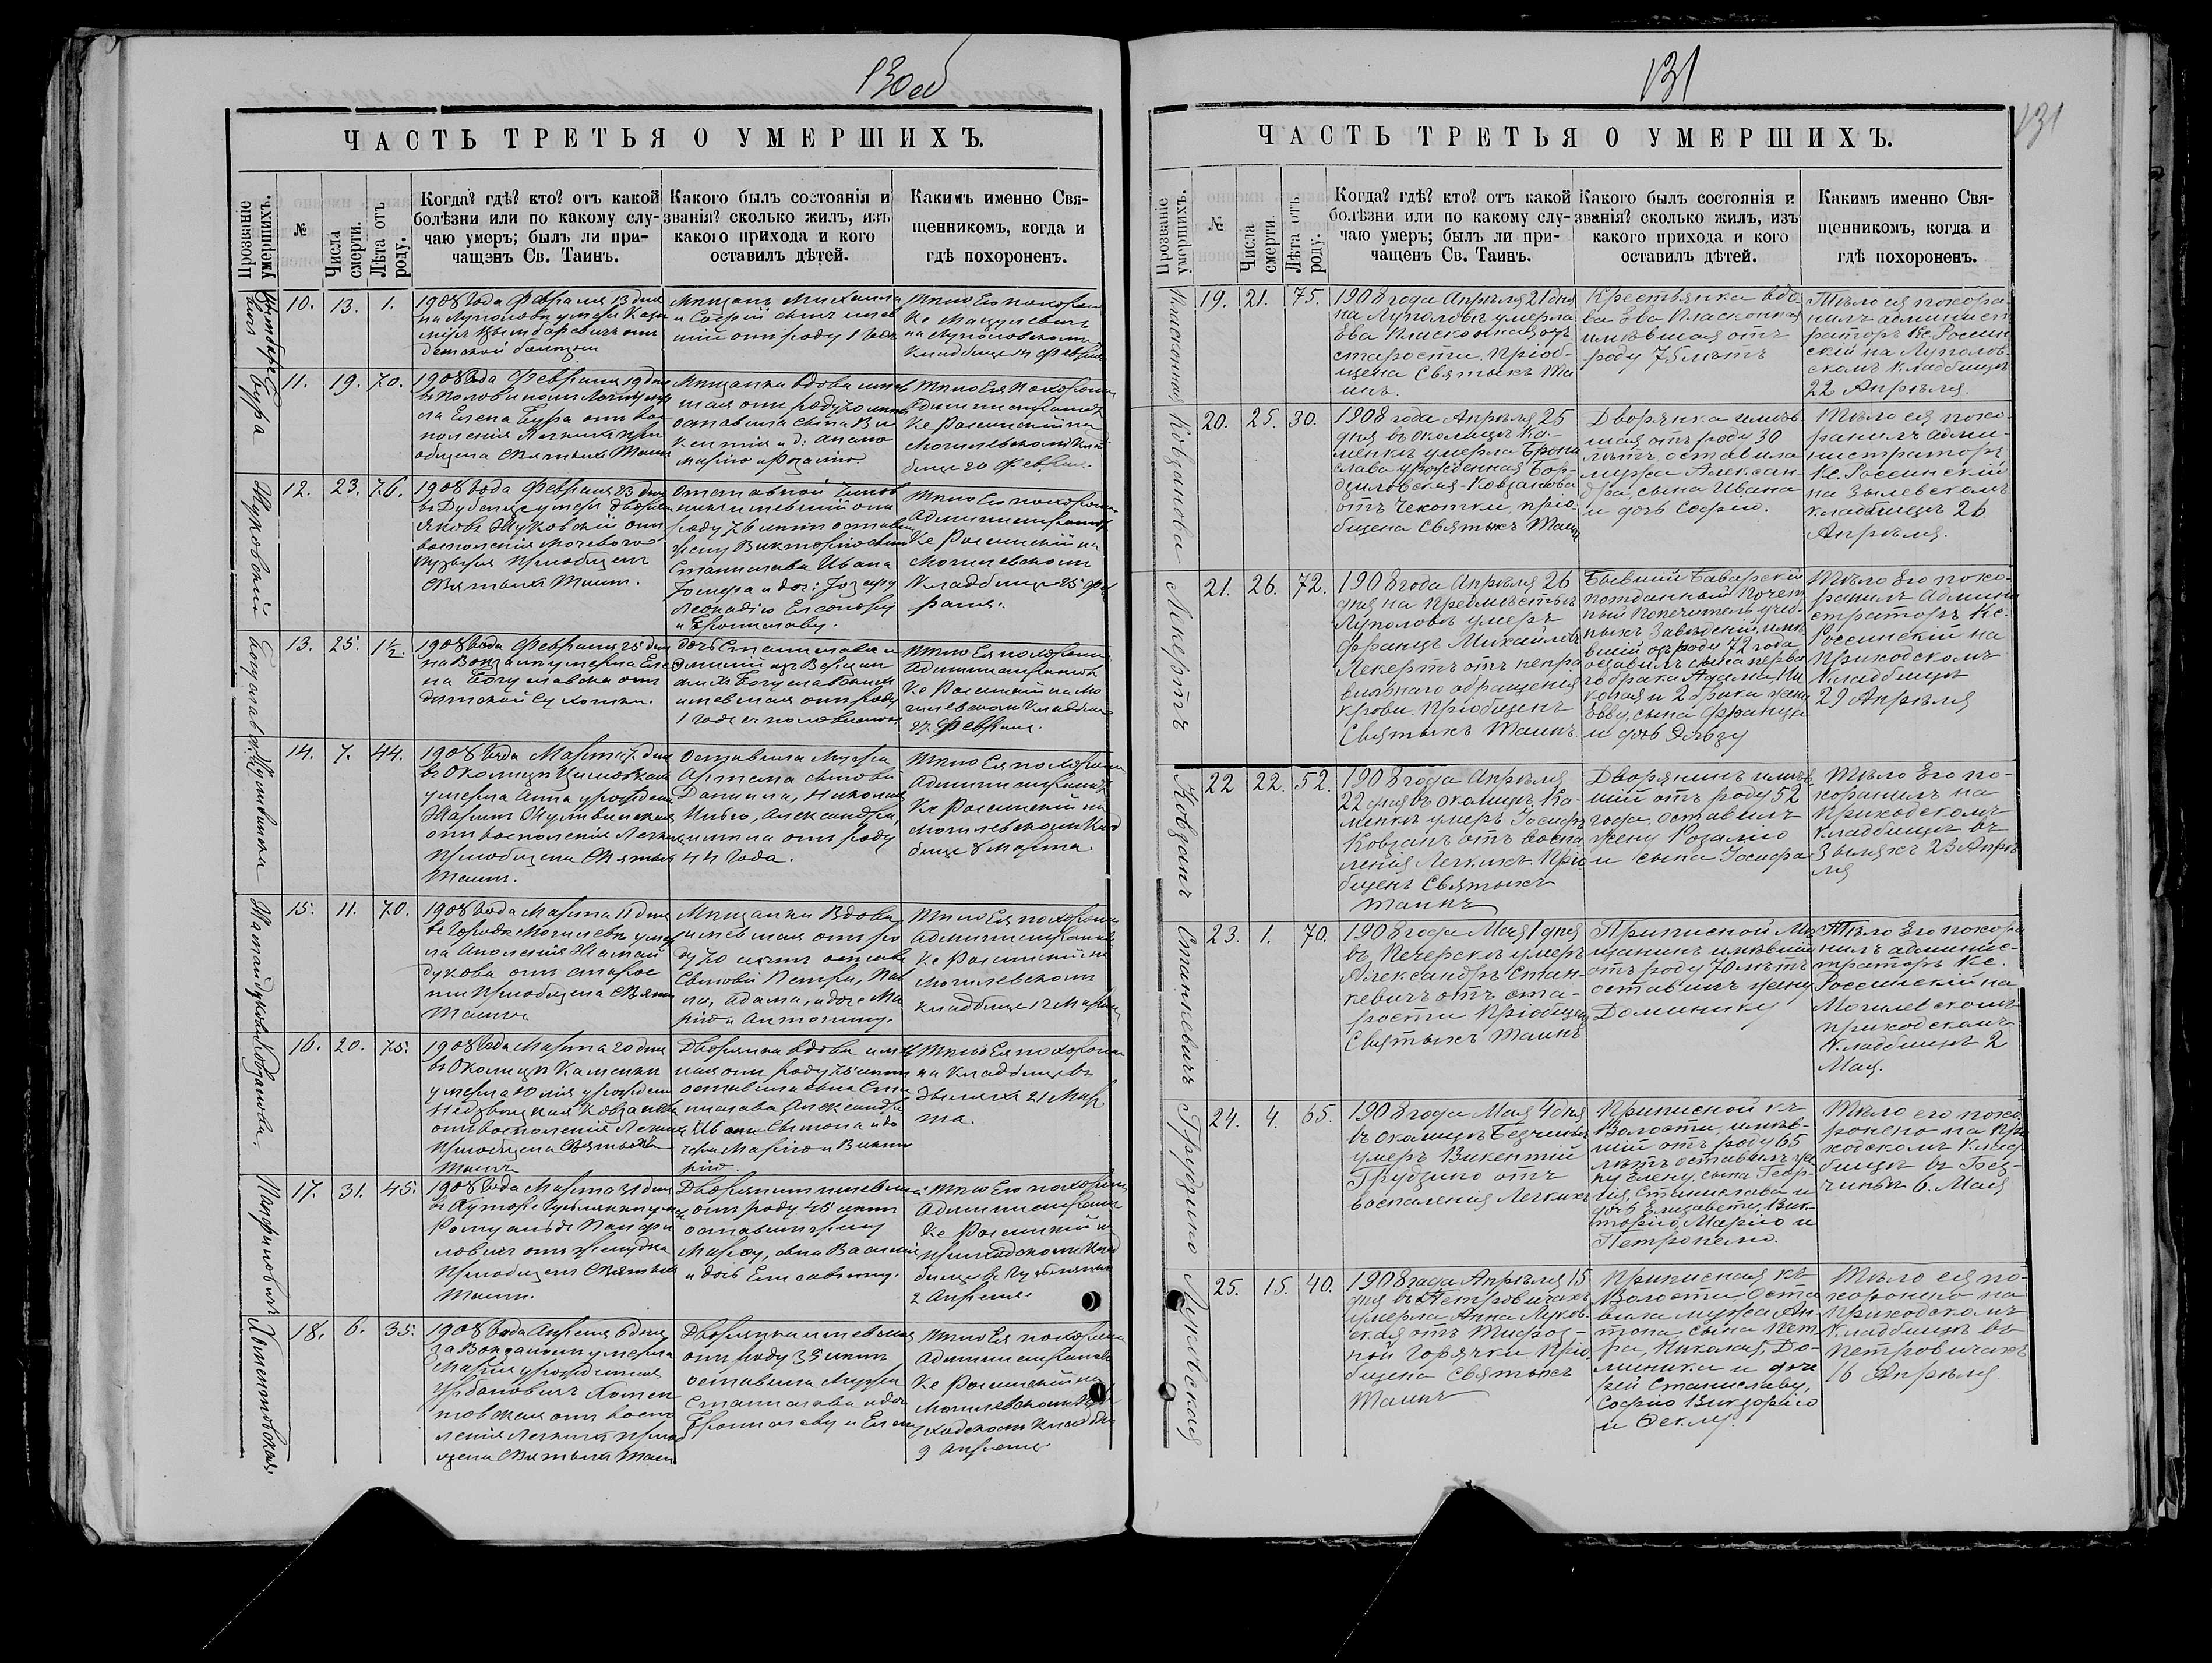 130об
ЧАСТЬ ТРЕТЬЯ О УМЕРШИХЪ.
Прозваніе умершихъ.
№
Числа смерти.
Лѣта отъ роду.
Когда? гдѣ? кто? отъ какой
болѣзни или по какому слу-
чаю умеръ; былъ ли при-
чащенъ Св. Таинъ.
Какого былъ состоянія и
званія? сколько жилъ, изъ
какого прихода и кого
оставилъ дѣтей.
Какимъ именно Свя-
щенникомъ, когда и
гдѣ похороненъ.
10. 13. 1.
1908 года Февраля 13 дня
на Луполовѣ умеръ Кази
миръ
детской болезни
Мещанъ Михаила
и Софіи сынъ имев
шій отъ роду 1 годъ
Кс
на Луполовскомъ
Кладбище 14 Февраля
Бура
11. 19. 70.
1908 года Февраля 19 дня
ла Елена Бура отъ вос
поленія Легкихъ прі
общена Святыхъ Таинъ
Мещанка вдова имев
шая отъ роду 70 летъ
оставила сына Ви
кентія и д:
Марію и Розалію.
Тело Ея похоронил
Администраторъ
Кс Росинскій на
Могилевскомъ Клад
бище 20 Февраля.
Жуковскій
12. 23. 76.
1908 года Февраля 23 дня
умеръ дворян
Яковъ Жуковскій отъ
восполенія мочевого
пузыря Пріобщенъ
Святыхъ Таинъ.
Отставной Чинов
никъ имевшій отъ
роду 76 летъ оставилъ
жену Викторію сынов
Станислава Ивана
Іосифа и доч: Іозефу
Леокадію Елеонору
и Брониславу.
Тело Его похоронил
Администраторъ
Кс Росинскій на
Могилевскомъ
Кладбище 25 Фев
раля.
13. 25. 1½.
1908 года Февраля 25 дня
на Вокзалѣ умерла Еле
на Богуславска отъ
детской Сухотки.
дочь Станислава и
Богуславскихъ
имевшая отъ роду
1 годъ съ половиною
Тело Ея похоронил
Администраторъ
Кс Росинскій на Мо
гилевскомъ Кладбище
27 Февраля.
14. 7. 44.
1908 года Марта 7 дня
въ Околице
умерла Анна урожден
отъ восполенія Легких
Пріобщена Святыхъ
Таинъ.
Оставила Мужа
сыновей
Даніила, Николая
Илью, Александра,
жила отъ роду
44 года.
Тело Ея похоронил
Администраторъ
Кс Росинскій на
Могилевскомъ Клад
бище 8 Марта.
15. 11. 70.
1908 года Марта 11 дня
въ Городе Могилеве умер
ла Аполенія
дукова отъ старос
ти Пріобщена Святых
Таинъ
Мещанка Вдова
имевшая отъ ро
ду 70 летъ оставила
Сыновей Петра, Пав
ла, Адама, и доч: Ма
рію и Антонину.
Тело Ея похоронил
Администраторъ
Кс Росинскій на
Могилевскомъ
кладбище 12 Марта
Ковзанова
16. 20. 75.
1908 года Марта 20 дня
въ Околице Каменки
умерла Юлія урожден
Ковзанова
отъ восполенія Легких
Пріобщена Святыхъ
Таинъ
Дворянка вдова имев
шая отъ роду 75 летъ
оставила сына Ста
нислава, Александра
Ивана Сымона и до
черей Марію и Викто
рію.
Тело Ея похоронил
на Кладбище въ
Зылях 21 Мар
та.
Панфиловичъ
17. 31. 45.
1908 года Марта 31 дня
въ Хуторе
Ромуальдъ Панфи
ловичъ отъ желудка
Пріобщенъ Святыхъ
Таинъ.
Дворянинъ имевшій
отъ роду 45 летъ
оставилъ жену
сына Василія
и дочь Елисавету.
Тело Его похоронил
Администраторъ
Кс Росинскій на
приходскомъ Клад
бище въ
2 Апреля.
Хоментовская
18. 6. 35.
1908 года Апреля 6 дня
за Вокзаломъ умерла
Марія урожденная
Урбановичъ Хомен
товская отъ воспо
ленія Легкихъ пріоб
щена Святыхъ Таин
Дворянка имевшая
отъ роду 35 летъ
оставила Мужа
Станислава и доч
Брониславу и Елену
Тело Ея похоронил
Администраторъ
Кс Росинскій на
Могилевскомъ При
ходскомъ Кладби
9 Апреля
131
131
ЧАСТЬ ТРЕТЬЯ О УМЕРШИХЪ.
Прозваніе умершихъ.
№
Числа смерти.
Лѣта отъ роду.
Когда? гдѣ? кто? отъ какой
болѣзни или по какому слу-
чаю умеръ; былъ ли при-
чащенъ Св. Таинъ.
Какого былъ состоянія и
званія? сколько жилъ, изъ
какого прихода и кого
оставилъ дѣтей.
Какимъ именно Свя-
щенникомъ, когда и
гдѣ похороненъ.
Плаксонная
19. 21. 75.
1908 года Апрѣля 21 дня
на Луполовѣ умерла
Ева Плаксонная отъ
старости. Пріоб-
щена Святыхъ Та
инъ.
Крестьянка вдо-
ва Ева Плаксонная
имѣвшая отъ
роду 75 лѣтъ
Тѣло ея похоро-
нилъ админист
раторъ Кс. Россин
скій на Луполов-
скомъ кладбищѣ
22 Апрѣля.
Ковзанова
20. 25. 30.
1908 года Апрѣля 25
дня въ околицѣ Ка-
менкѣ умерла Брони
слава урожденная Бор-
дзиловская-Ковзанова
отъ Чахотки, пріо-
бщена Святыхъ Таинъ
Дворянка имѣв
шая отъ роду 30
лѣтъ, оставила
мужа Алексан-
дра, сына Ивана
и дочь Софію.
Тѣло ея похо-
ронилъ адми-
нистраторъ
Кс. Россинскій
на Зылевскомъ
кладбищѣ 26
Апрѣля.
Лекертъ
21. 26. 72.
1908 года Апрѣля 26
дня на Предмѣстьѣ
Луполовѣ умеръ
Францъ Михайловъ
Лекертъ отъ непра
вильнаго обращенія
крови. Пріобщенъ
Святыхъ Таинъ
Бывшій Баварскій
подданный Почет
ный Попечитель учеб-
ныхъ Заведеній, имѣ
вшій отъ роду 72 года
оставилъ сына перва
го брака Адама, Ни
колая и 2 брака жена
Евву, сына Франца
и дочь Эльзу
Тѣло Его похо-
ронилъ Админи
страторъ Кс.
Россинскій на
Приходскомъ
Кладбищѣ
29 Апрѣля
Ковзанъ
22 22. 52.
1908 года Апрѣля
22 дня въ околицѣ Ка-
менкѣ умеръ Іосифъ
Ковзанъ отъ воспа
ленія Легкихъ. Пріо
бщенъ Святыхъ
Таинъ
Дворянинъ имѣв
шій отъ роду 52
года, оставилъ
жену Розалію
и сына Іосифа
Тѣло Его по-
хоронилъ на
Приходскомъ
Кладбищѣ въ
Зыляхъ 23 Апрѣ
ля
Станкевичъ
23. 1. 70.
1908 года Мая 1 дня
въ Печерскѣ умеръ
Александръ Стан-
кевичъ отъ ста-
рости Пріобщенъ
Святыхъ Таинъ
Приписной Мѣ
щанинъ имѣвшій
отъ роду 70 лѣтъ
оставилъ жену
Доминику
Тѣло Его похоро
нилъ админис-
траторъ Кс.
Россинскій на
Могилевскомъ
приходскомъ
Кладбищѣ 2
Мая.
Грудзино
24. 4. 65.
1908 года Мая 4 дня
въ околицѣ Безчинье
умеръ Викентій
Грудзино отъ
воспаленія Легкихъ
Приписной къ
Волости, имѣв-
шій отъ роду 65
лѣтъ оставилъ же-
ну Елену, сына Геор-
гія, Станислава и
дочь Елизавету, Вик-
торію, Марію и
Петронелю.
Тѣло его похо
ронено на При
ходскомъ Клад-
бищѣ въ Без-
чиньи 6. Мая
Луковская
25. 15. 40.
1908 года Апрѣля 15
дня въ Петровичахъ
умерла Анна Луков-
ская отъ Тифоз-
ной Горячки Пріо
бщена Святыхъ
Таинъ
Приписная къ
Волости Оста
вила мужа Ан-
тона, сына Пет-
ра, Николая, До-
миника и доче
рей Станиславу,
Софію Викторію
и Теклу.
Тѣло ея по-
хоронено на
Приходскомъ
Кладбищѣ въ
Петровичахъ
16 Апрѣля